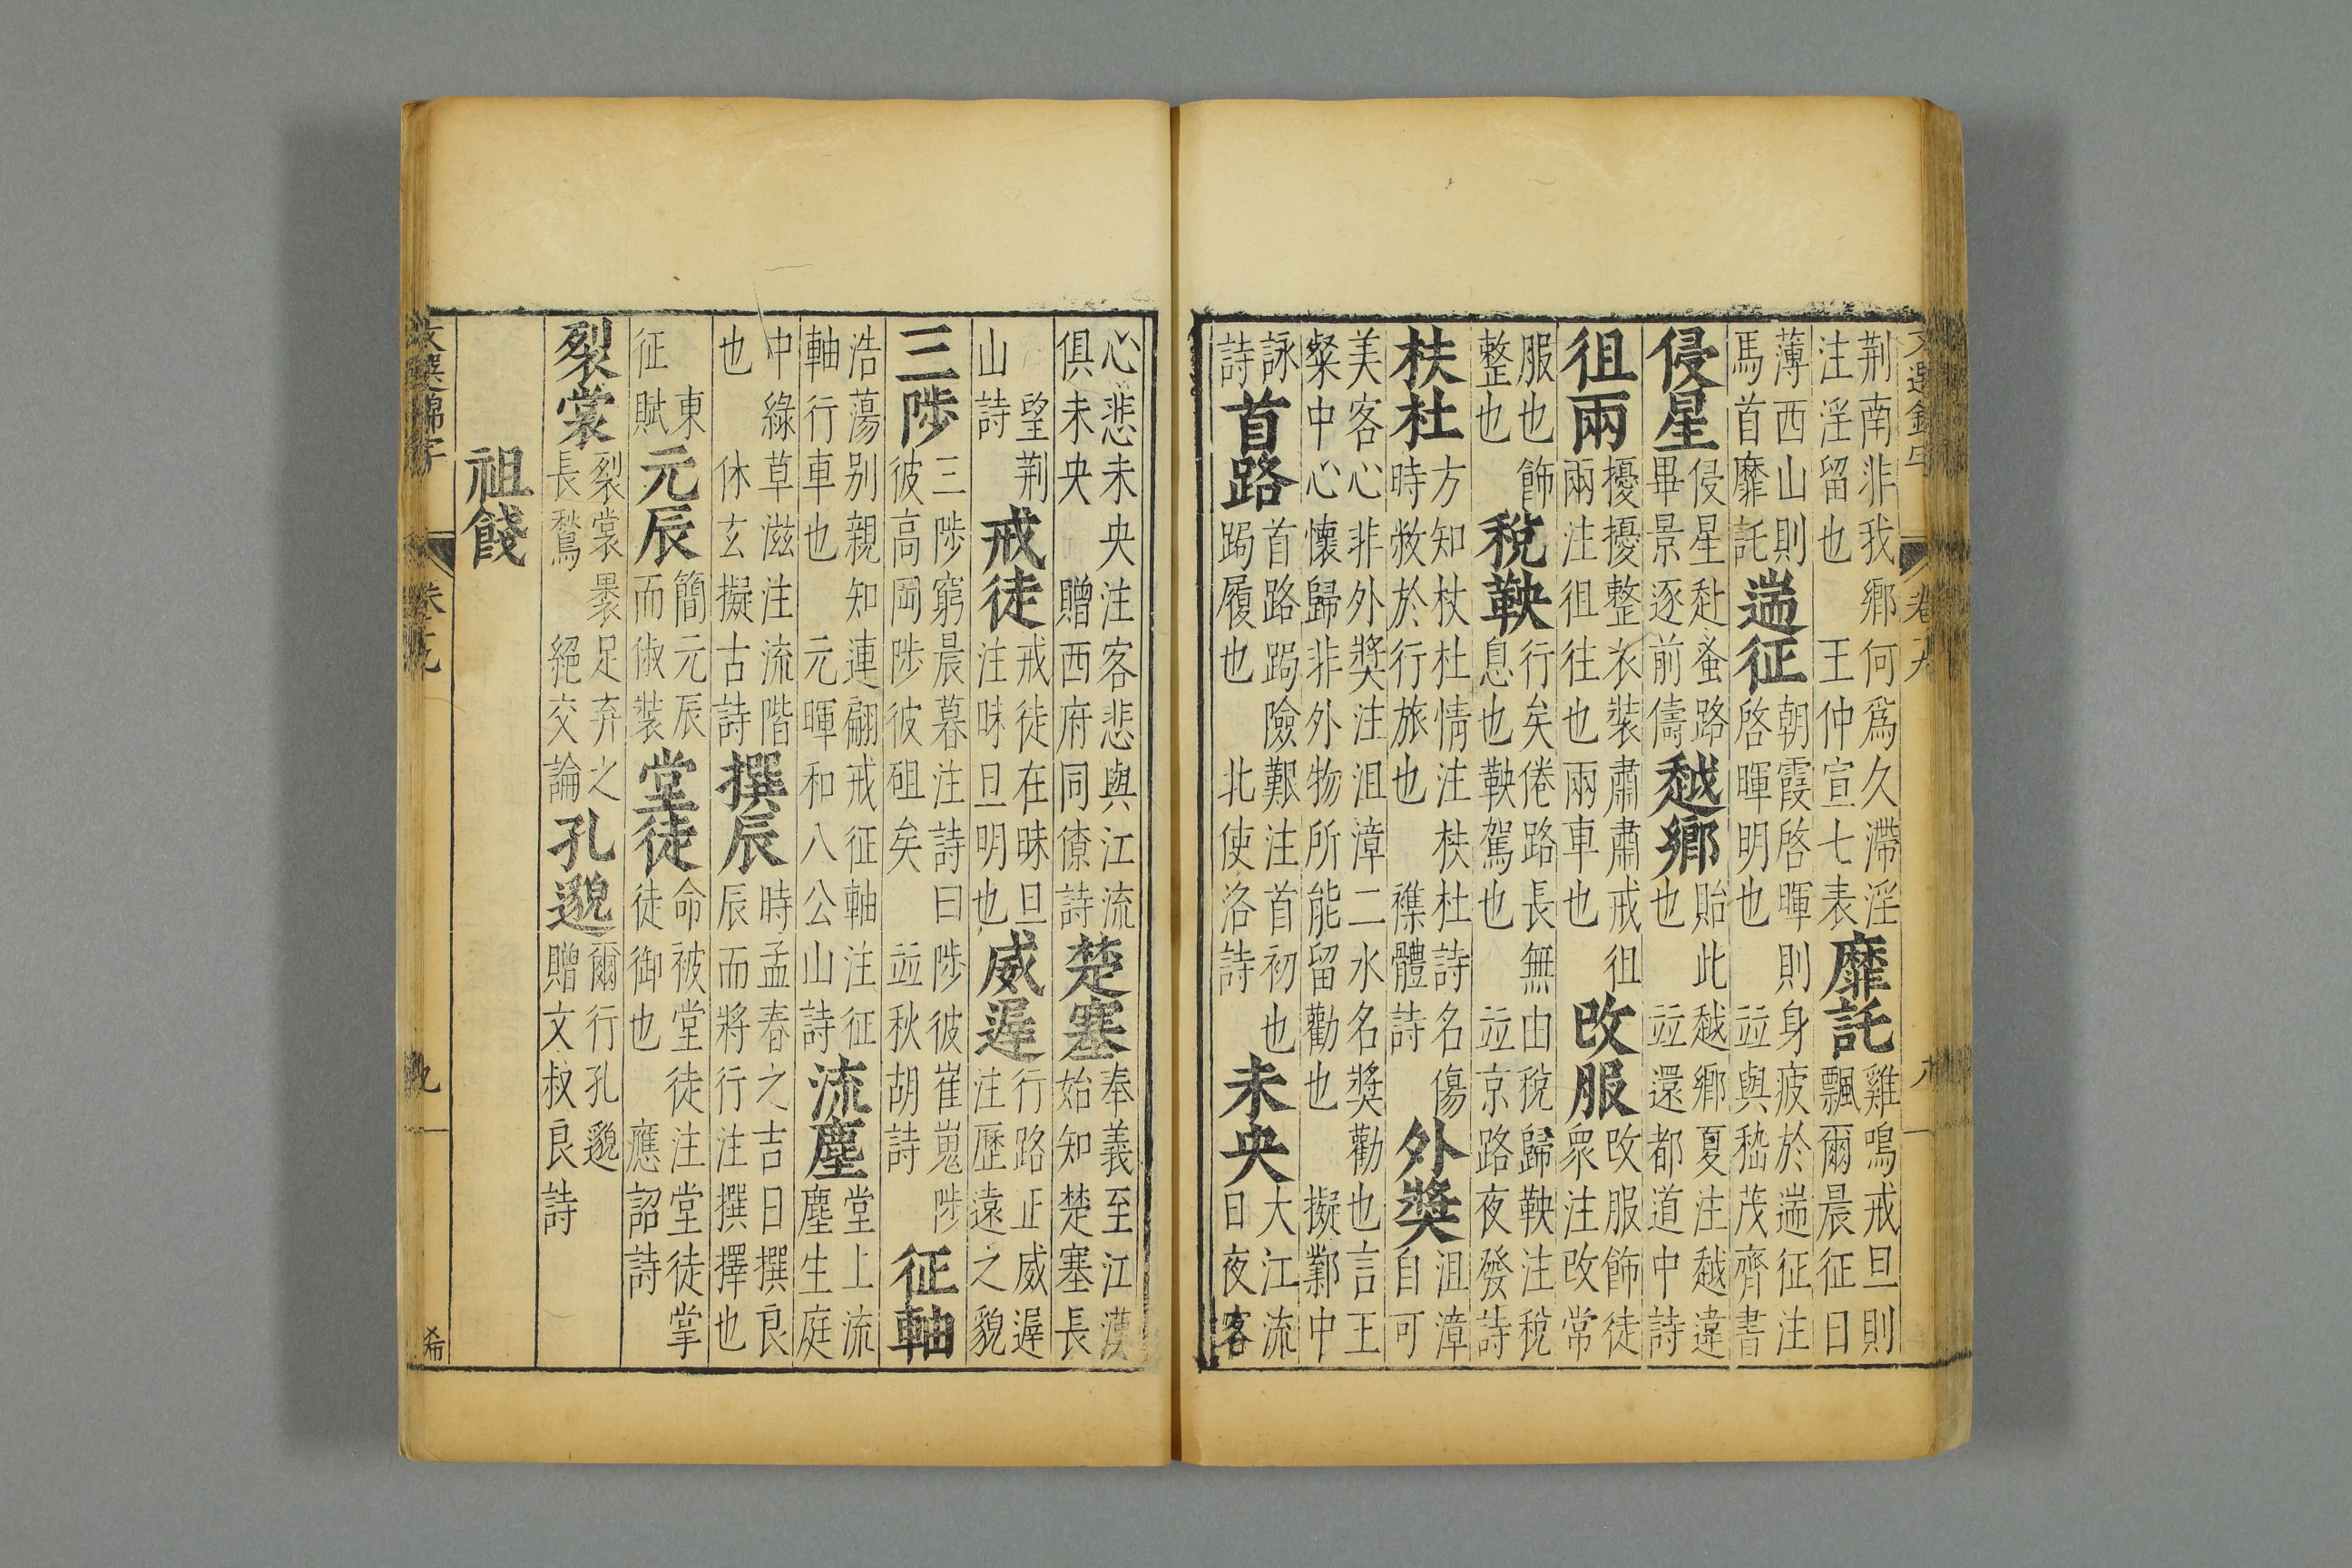 文選錦字 卷九 八
荆南非我鄉何爲久滯淫注淫留也 王仲宣七表靡託雞鳴戒旦則飄爾晨征日
薄西山則馬首靡託遄征朝霞啓暉則身疲於遄征注啓暉明也 竝與嵇茂齊書
侵星侵星赴蚤路畢景逐前儔越鄉貽此越鄉夏注越違也 竝還都道中詩
徂兩擾擾整衣裝肅肅戒徂兩注徂往也兩車也改服改服飾徒衆注改常
服也飾整也稅鞅行矣倦路長無由稅歸鞅注稅息也鞅駕也 竝京路夜發詩
杕杜方知杕杜情注杕杜詩名傷時救於行旅也 襍體詩外奬沮漳自可
美客心非外奬注沮漳二水名奬勸也言王粲中心懷歸非外物所能留勸也 擬鄴中
詠詩首路首路跼險艱注首初也跼履也 北使洛詩未央大江流日夜客
心悲未央注客悲與江流俱未央 贈西府同僚詩楚塞奉義至江漢始知楚塞長
望荆山詩戒徒戒徒在昧旦注昧旦明也威遲行路正威遲注歷遠之貌
三陟三陟窮晨暮注詩曰陟彼崔嵬陟彼高岡陟彼砠矣 竝秋胡詩征軸
浩蕩别親知連翩戒征軸注征軸行車也 元暉和八公山詩流塵堂上流塵生庭
中綠草滋注流階也 休玄擬古詩撰辰時孟春之吉日撰良辰而將行注撰擇也
東征賦元辰簡元辰而俶裝堂徒命被堂徒注堂徒掌徒御也 應詔詩
裂裳裂裳褁足弃之長鶩 絕交論孔邈爾行孔邈贈文叔良詩
祖餞
文選錦字 卷九 九 希